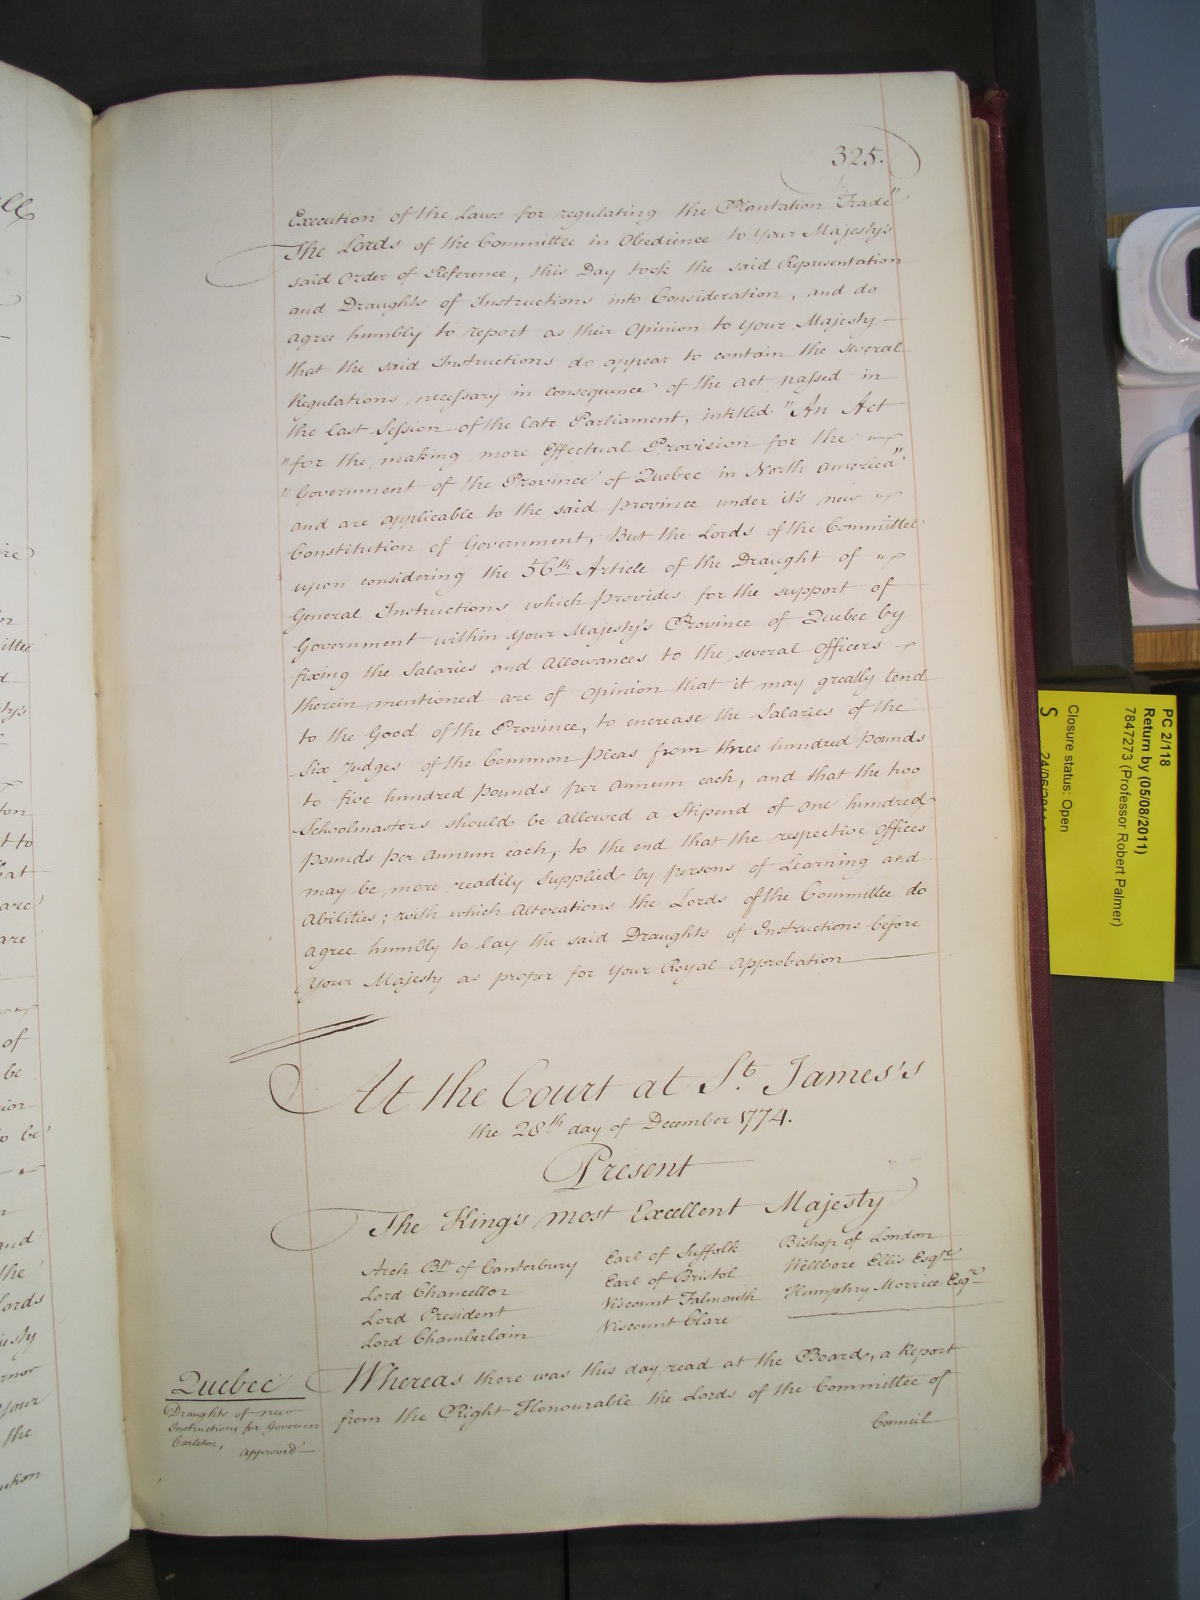 325.
Execution of the Laws for regulating the Plantation Trade"
The Lords of the Committee in Obedience to Your Majesty's
said Order of Reference, this Day took the said Representation
and Draughts of Instructions into Consideration, and do
agree humbly to report as their Opinion to Your Majesty —
that the said Instructions do appear to contain the several
Regulations necessary in consequence of the Act passed in
the last Session of the late Parliament, intitled "An Act
"for the making more Effectual Provision for the
"Government of the Province of Quebec in North America"
and are applicable to the said Province under it's new
Constitution of Government, But the Lords of the Committee
upon considering the 56th Article of the Draught of
General Instructions which provides for the support of
Government within Your Majesty's Province of Quebec by
fixing the Salaries and Allowances to the several Officers
therein mentioned are of Opinion that it may greatly tend
to the Good of the Province, to encrease the Salaries of the
Six Judges of the Common Pleas from three hundred Pounds
to five hundred Pounds per Annum each, and that the two
Schoolmasters should be allowed a Stipend of one hundred
Pounds per Annum each, to the end that the respective Offices
may be more readily supplied by Persons of Learning and
Abilities; with which Alterations the Lords of the Committee do
agree humbly to lay the said Draughts of Instructions before
Your Majesty as proper for Your Royal Approbation
At the Court at St. James's
the 28th day of December 1774.
Present
The King's most Excellent Majesty
Arch Bp of Canterbury Earl of Suffolk Bishop of London
Lord Chancellor Earl of Bristol Wellbore Ellis Esqr
Lord President Viscount Falmouth Humphry Morrice Esqr
Lord Chamberlain Viscount Clare
Quebec
Draughts of new
Instructions for Governor
Carleton,
approved
Whereas there was this day read at the Board, a Report
from the Right Honourable the Lords of the Committee of
Council
PC 2/118
Return by (05/08/2011)
7847273 (Professor Robert Palmer)
Closure status: Open
S